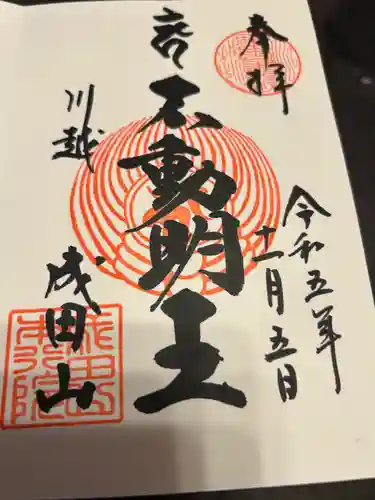 奉拝
令和五年
十一月五日
不動明王
川越
成田山